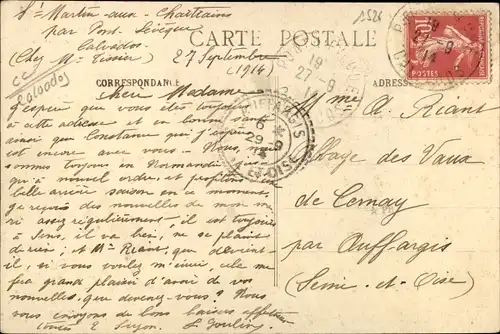 St Martin-aux-Chartrains
par Pont-Levêque
Calvados
(Chez Mr Tissier)
1526
CARTE POSTALE
27 Septembre
(1914)
CORRESPONDANCE
ADRESSE
CC
Calvados
Chère Madame
J'espère que vous êtes toujours
à cette adresse et en bonne santé
ainsi que Constance qui j'espère
est encore avec vous. Nous, nous
sommes toujours en Normandie jusqu'
qu'à nouvel ordre, et profitons d'une
belle arrière saison en ce moment,
je reçois des nouvelles de mon ma
ri assez régulièrement il est toujours
à Sens, il va bien, ne se plaint
de rien; et Mr Riant, que devient-
il, si vous voulez m'écrire, cela me
fera grand plaisir d'avoir de vos
nouvelles, que devenez-vous? Nous
vous envoyons de bons baisers affectueux
toutes 2 Suzon. L. Goulin
Mme A. Riant
Abbaye des Vaux
de Cernay
par Auffargis
(Seine-et-Oise)
AUFFARGIS
6
29-9
14
ET-OISE
19
27-9
14
10
POSTES